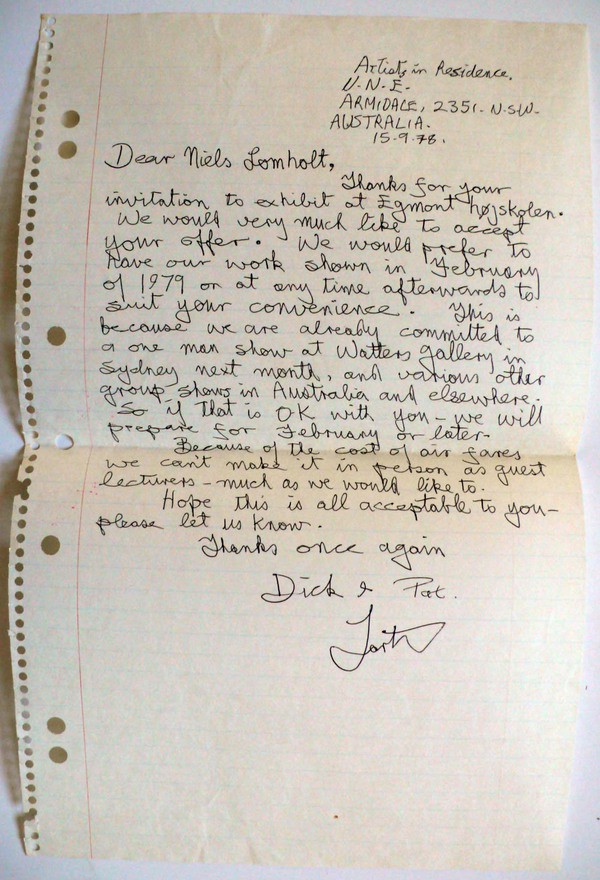 Artists in Residence.
U.N.E.
ARMIDALE, 2351. N.S.W.
AUSTRALIA.
15.9.78.
Dear Niels Lomholt,
Thanks for your
invitation to exhibit at Egmont højskolen.
We would very much like to accept
your offer. We would prefer to
have our work shown in February
of 1979 or at any time afterwards to
suit your convenience. This is
because we are already committed to
a one man show at Watters gallery in
Sydney next month, and various other
group shows in Australia and elsewhere.
So if that is OK with you - we will
prepare for February or later.
Because of the cost of air fares
we can't make it in person as guest
lecturers - much as we would like to.
Hope this is all acceptable to you -
please let us know.
Thanks once again
Dick & Pat.